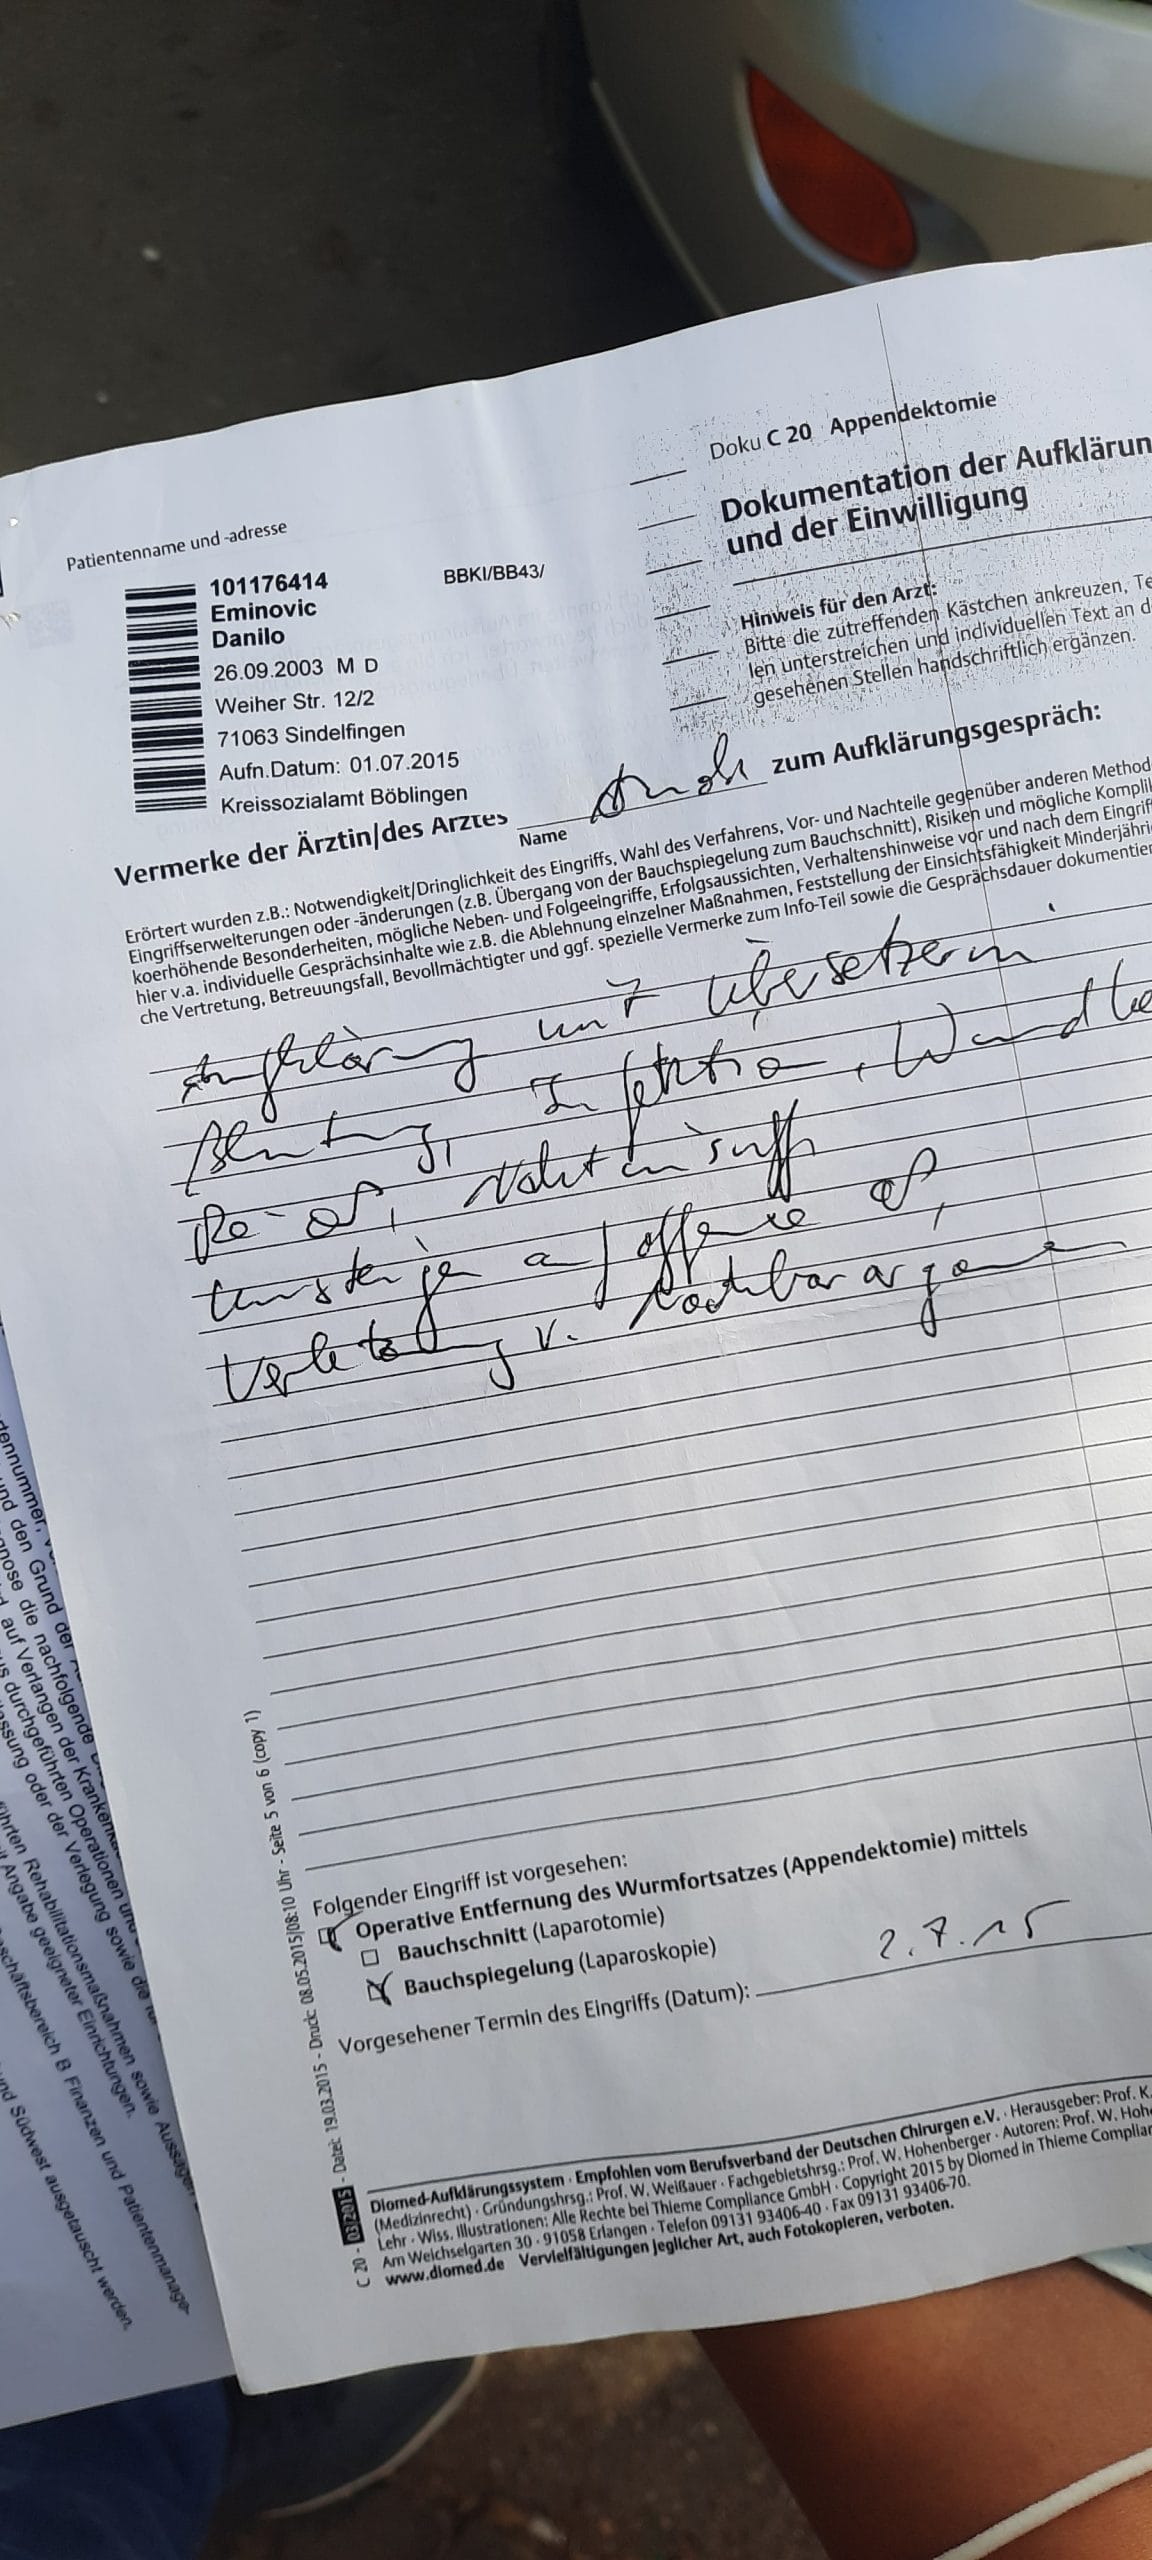 Doku C 20 Appendektomie
Dokumentation der Aufklärun
und der Einwilligung
Patientenname und -adresse
101176414
BBKI/BB43/
Eminovic
Danilo
26.09.2003 M D
Weiher Str. 12/2
71063 Sindelfingen
Aufn.Datum: 01.07.2015
Kreissozialamt Böblingen
Hinweis für den Arzt:
Bitte die zutreffenden Kästchen ankreuzen, Te
len unterstreichen und individuellen Text an d
gesehenen Stellen handschriftlich ergänzen.
Vermerke der Ärztin/des Arztes zum Aufklärungsgespräch:
Name
Erörtert wurden z.B.: Notwendigkeit/Dringlichkeit des Eingriffs, Wahl des Verfahrens, Vor- und Nachteile gegenüber anderen Method
Eingriffserweiterungen oder -änderungen (z.B. Übergang von der Bauchspiegelung zum Bauchschnitt), Risiken und mögliche Kompli
koerhöhende Besonderheiten, mögliche Neben- und Folgeeingriffe, Erfolgsaussichten, Verhaltenshinweise vor und nach dem Eingrif
hier v.a. individuelle Gesprächsinhalte wie z.B. die Ablehnung einzelner Maßnahmen, Feststellung der Einsichtsfähigkeit Minderjähri
che Vertretung, Betreuungsfall, Bevollmächtigter und ggf. spezielle Vermerke zum Info-Teil sowie die Gesprächsdauer dokumentier
Aufklärung Übersetzerin
Blutung, Infektion, Wundhe
Re-OP, Nahtinsuff
Umsteigen auf offene OP,
Verletzung v. Nachbarorganen
Folgender Eingriff ist vorgesehen:
Operative Entfernung des Wurmfortsatzes (Appendektomie) mittels
Bauchschnitt (Laparotomie)
Bauchspiegelung (Laparoskopie)
Vorgesehener Termin des Eingriffs (Datum): 2.7.15
C 20 - 03/2015 - Datei: 19.03.2015 - Druck: 08.05.2015/08:10 Uhr - Seite 5 von 6 (copy 1)
Diomed-Aufklärungssystem · Empfohlen vom Berufsverband der Deutschen Chirurgen e.V. · Herausgeber: Prof. K.
(Medizinrecht) · Gründungshrsg.: Prof. W. Weißauer · Fachgebietshrsg.: Prof. W. Hohenberger · Autoren: Prof. W. Hohe
Lehr · Wiss. Illustrationen: Alle Rechte bei Thieme Compliance GmbH · Copyright 2015 by Diomed in Thieme Complian
Am Weichselgarten 30 · 91058 Erlangen · Telefon 09131 93406-40 · Fax 09131 93406-70.
www.diomed.de Vervielfältigungen jeglicher Art, auch Fotokopieren, verboten.
tennummer,
und den Grund der
gnose die nachfolgende
auf Verlangen der Kranken
us durchgeführten Operationen und
assung oder der Verlegung sowie die für
ührten Rehabilitationsmaßnahmen sowie Aussagen
it Angabe geeigneter Einrichtungen.
schäftsbereich B Finanzen und Patientenmanage-
nd Südwest ausgetauscht werden.